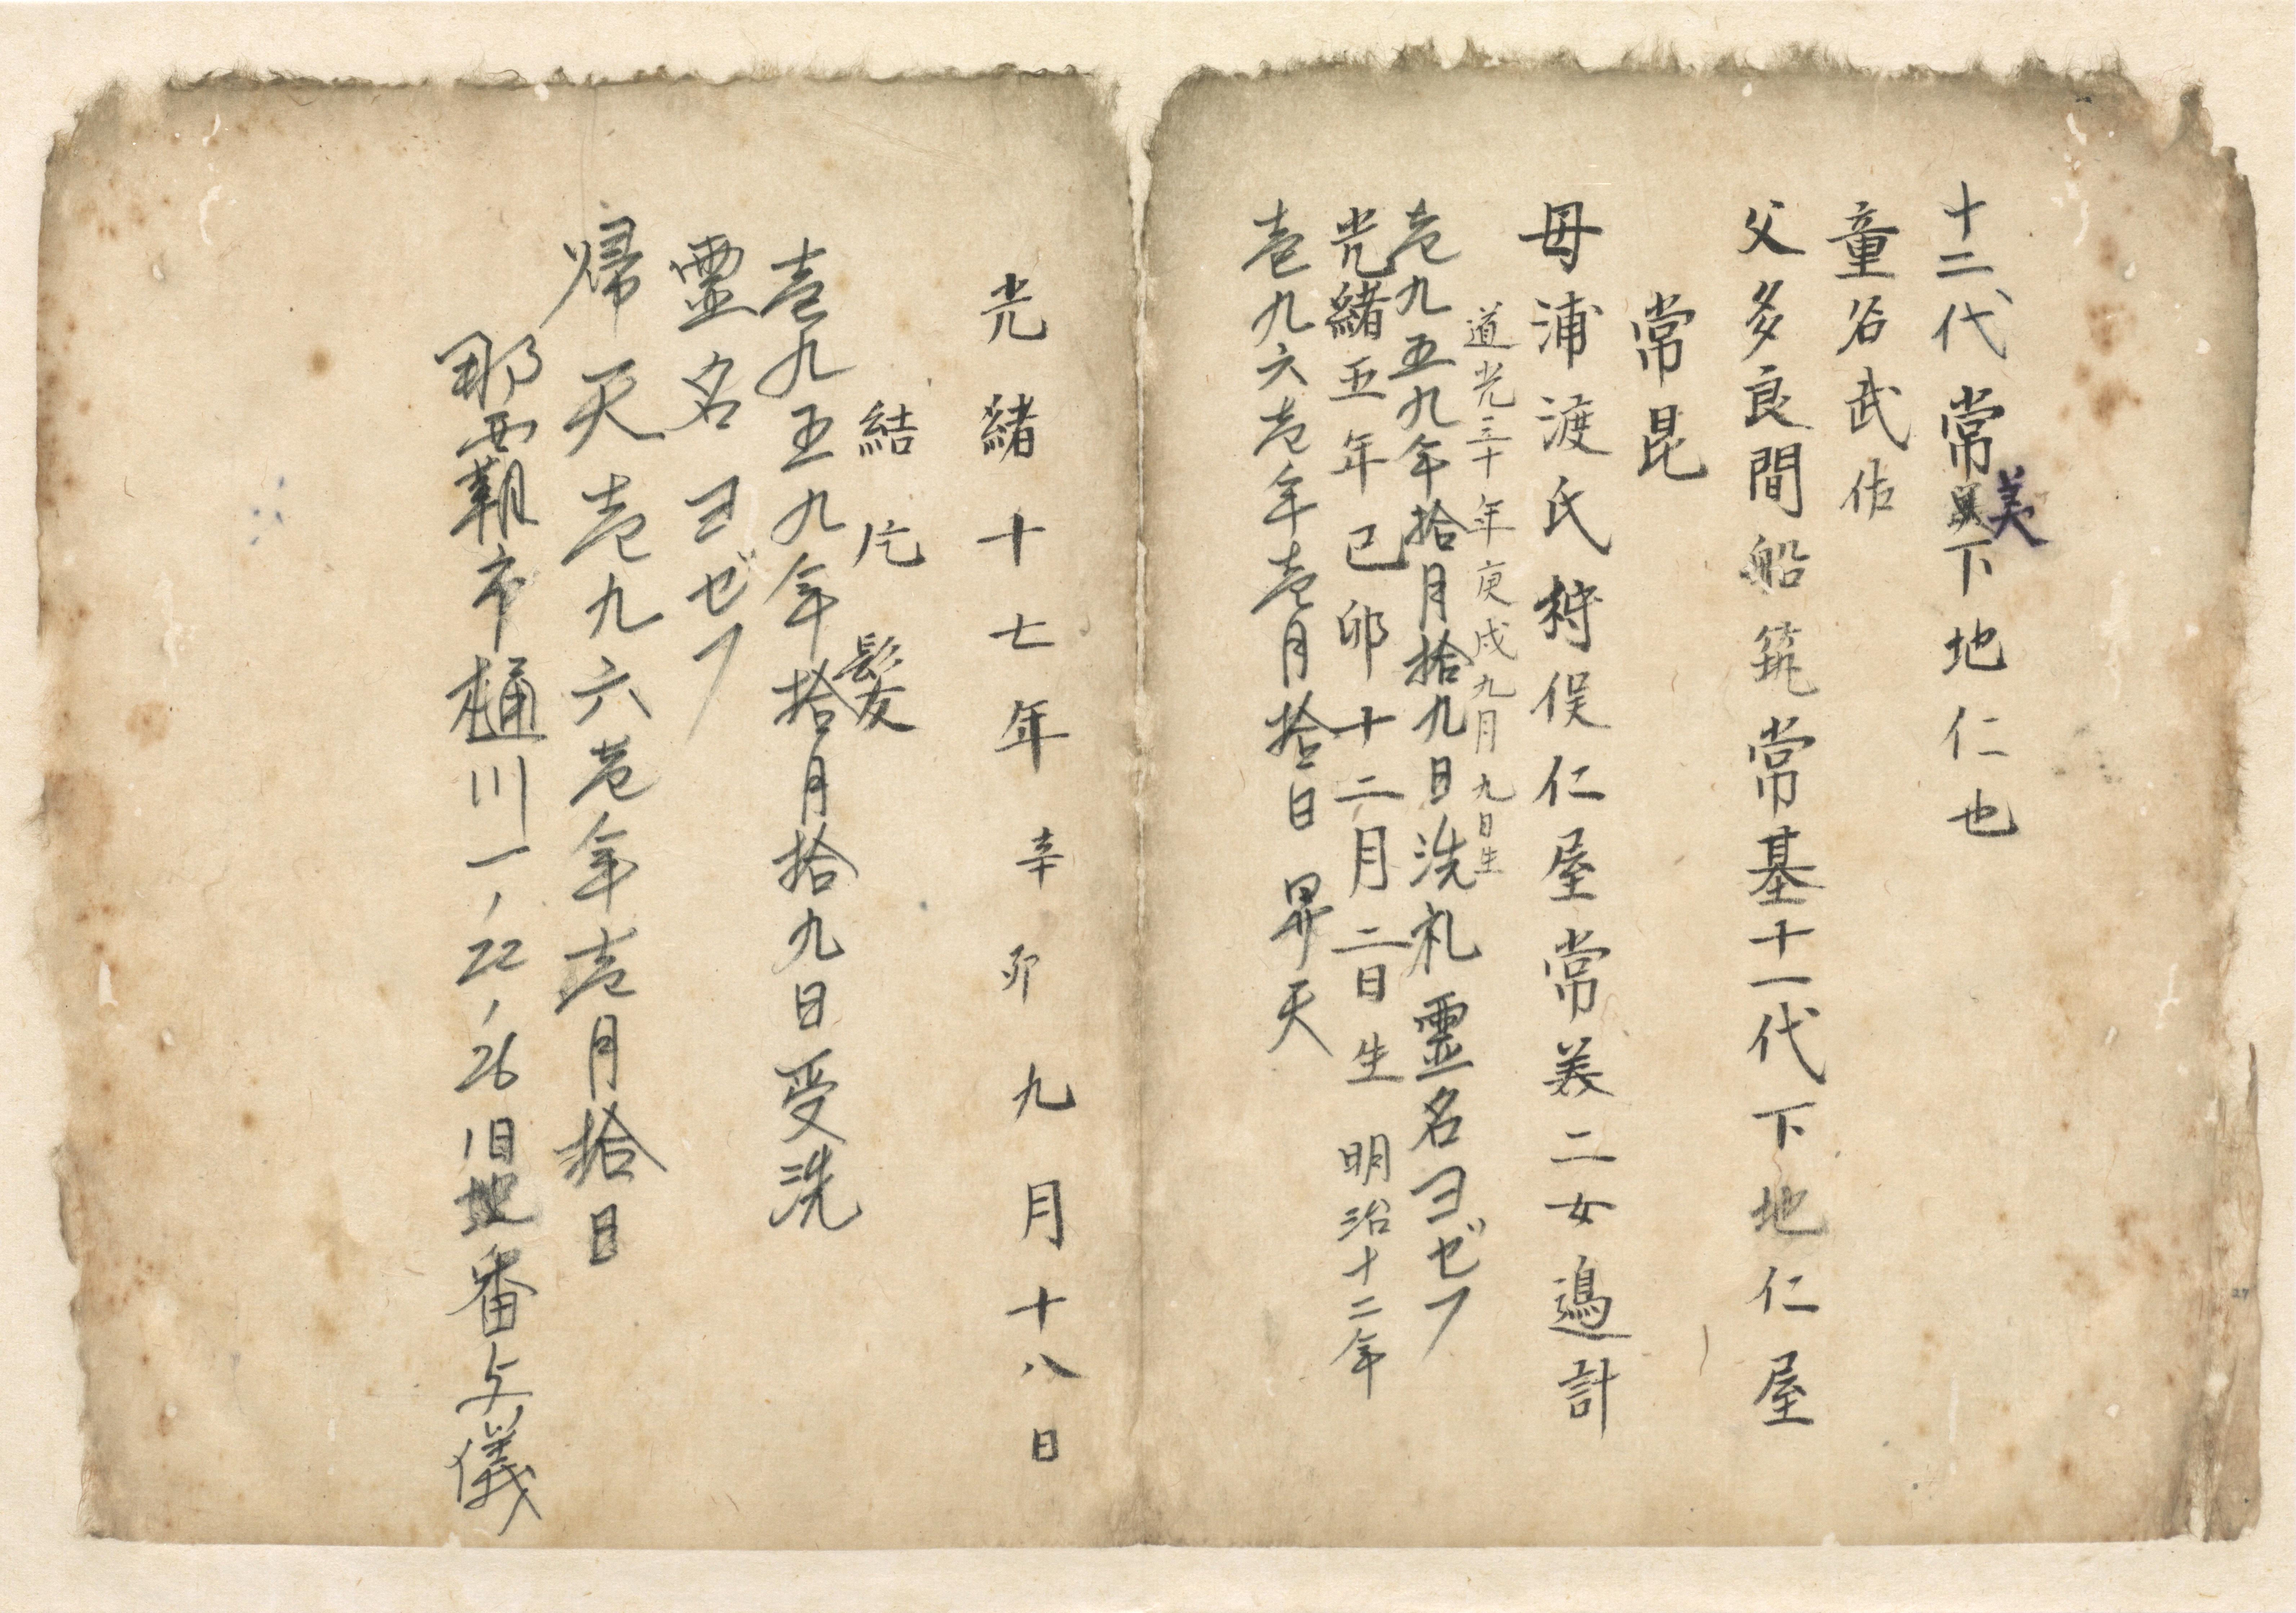 十二代常美下地仁也
童名武佐
父多良間船筑常基十一代下地仁屋
常昆
母浦渡氏狩俣仁屋常美二女過計
道光三十年庚戌九月九日生
壱九五九年拾月拾九日洗礼霊名ヨゼフ
光緒五年己卯十二月二日生 明治十二年
壱九六壱年壱月拾日昇天
光緒十七年辛卯九月十八日
結片髪
壱九五九年拾月拾九日受洗
霊名ヨゼフ
帰天壱九六壱年壱月拾日
那覇市樋川一、22、26旧地番与儀